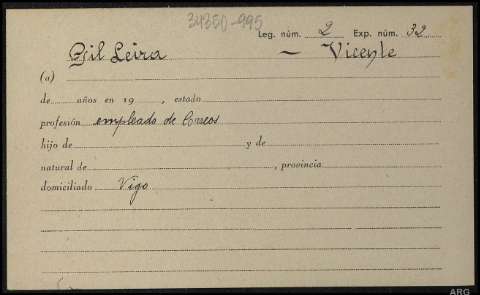 34350-995
Leg. núm. 2 Exp. núm. 32
Gil Leira - Vicente
(a)
de años en 19 , estado
profesión empleado de Correos
hijo de y de
natural de , provincia
domiciliado Vigo
ARG